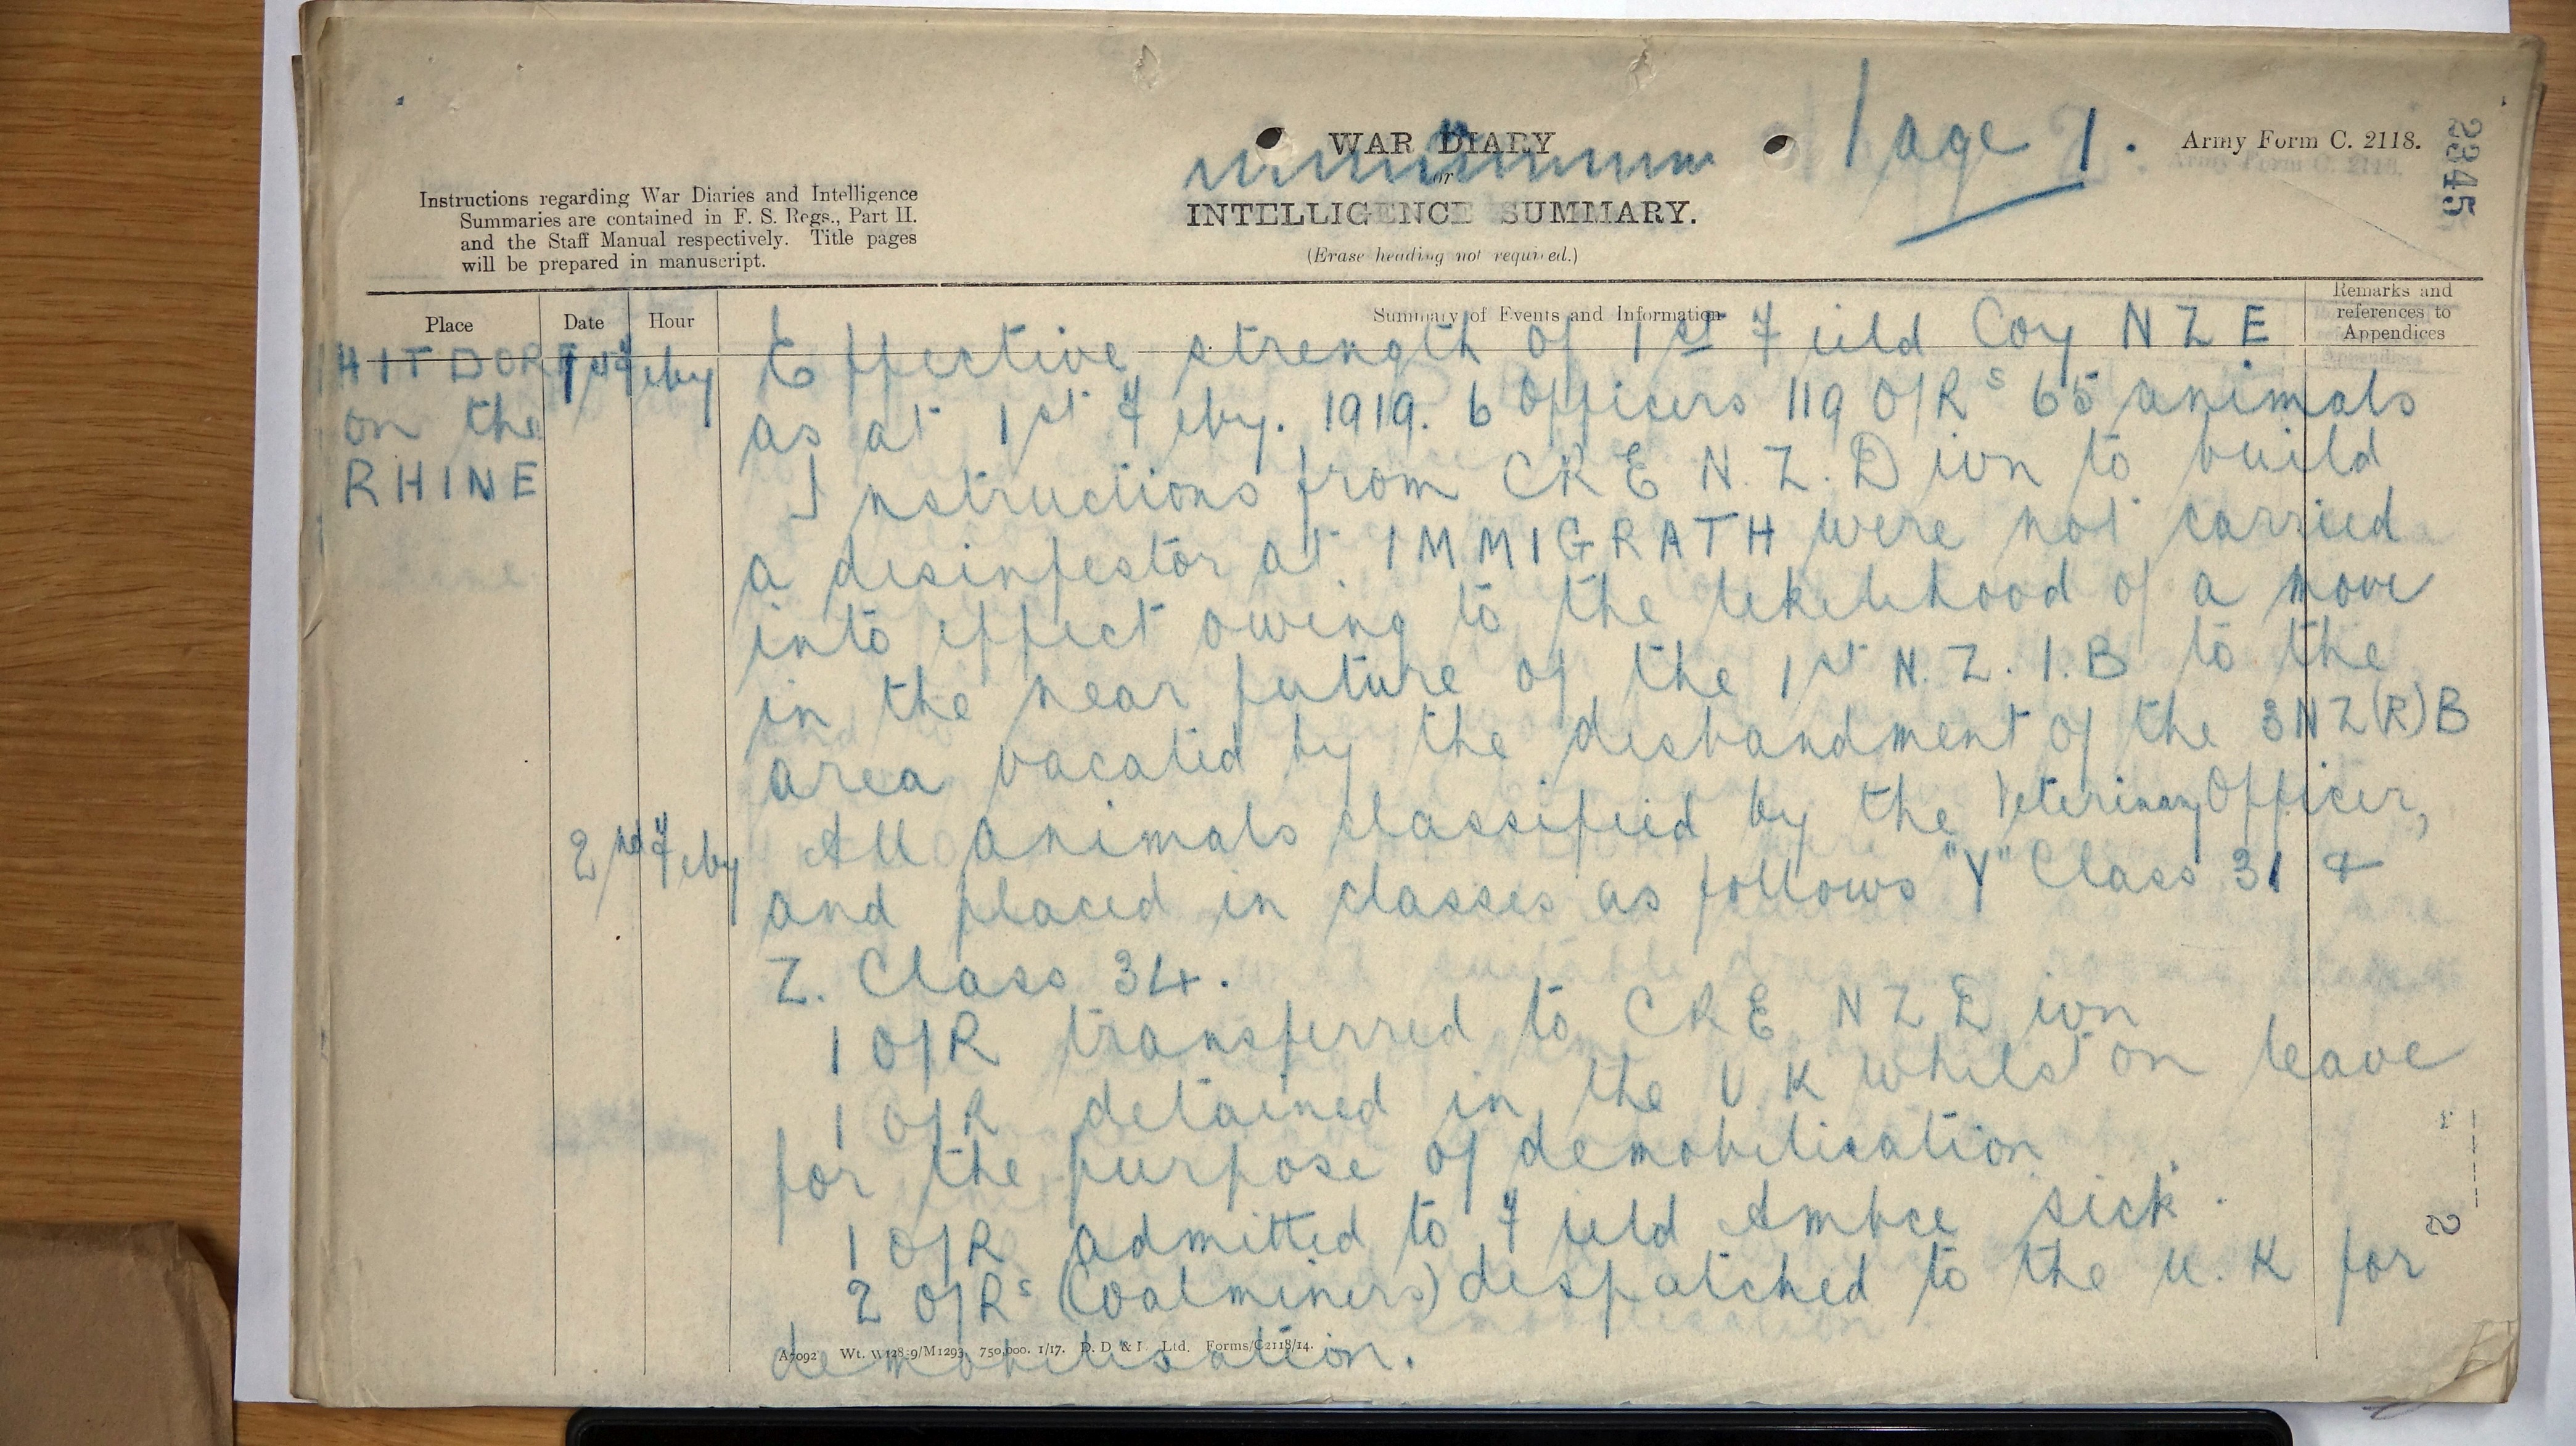 Page 1.
Army Form C. 2118.
2345
WAR DIARY
or
INTELLIGENCE SUMMARY.
(Erase heading not required.)
Instructions regarding War Diaries and Intelligence
Summaries are contained in F. S. Regs., Part II.
and the Staff Manual respectively. Title pages
will be prepared in manuscript.
Place Date Hour Summary of Events and Information Remarks and references to Appendices
HITDORF 1st Feby Effective strength of 1st Field Coy N Z E
on the as at 1st Feby. 1919. 6 Officers 119 O/Rs 65 animals
RHINE Instructions from CRE N. Z. Divn to build
a disinfestor at IMMIGRATH were not carried
into effect owing to the likelihood of a move
in the near future of the 1st N. Z. I. B to the
area vacated by the disbandment of the 3 N Z (R) B
2nd Feby All animals classified by the Veterinary Officer,
and placed in classes as follows "Y" Class 31 &
Z. Class 34.
1 O/R transferred to CRE N Z Divn
1 O/R detained in the U K whilst on leave
for the purpose of demobilisation
1 O/R admitted to Field Ambce sick.
2 O/Rs (Coalminers) despatched to the U. K for
demobilisation.
A7092 Wt. W128:9/M1293 750,000. 1/17. D. D & L Ltd. Forms/C2118/14.